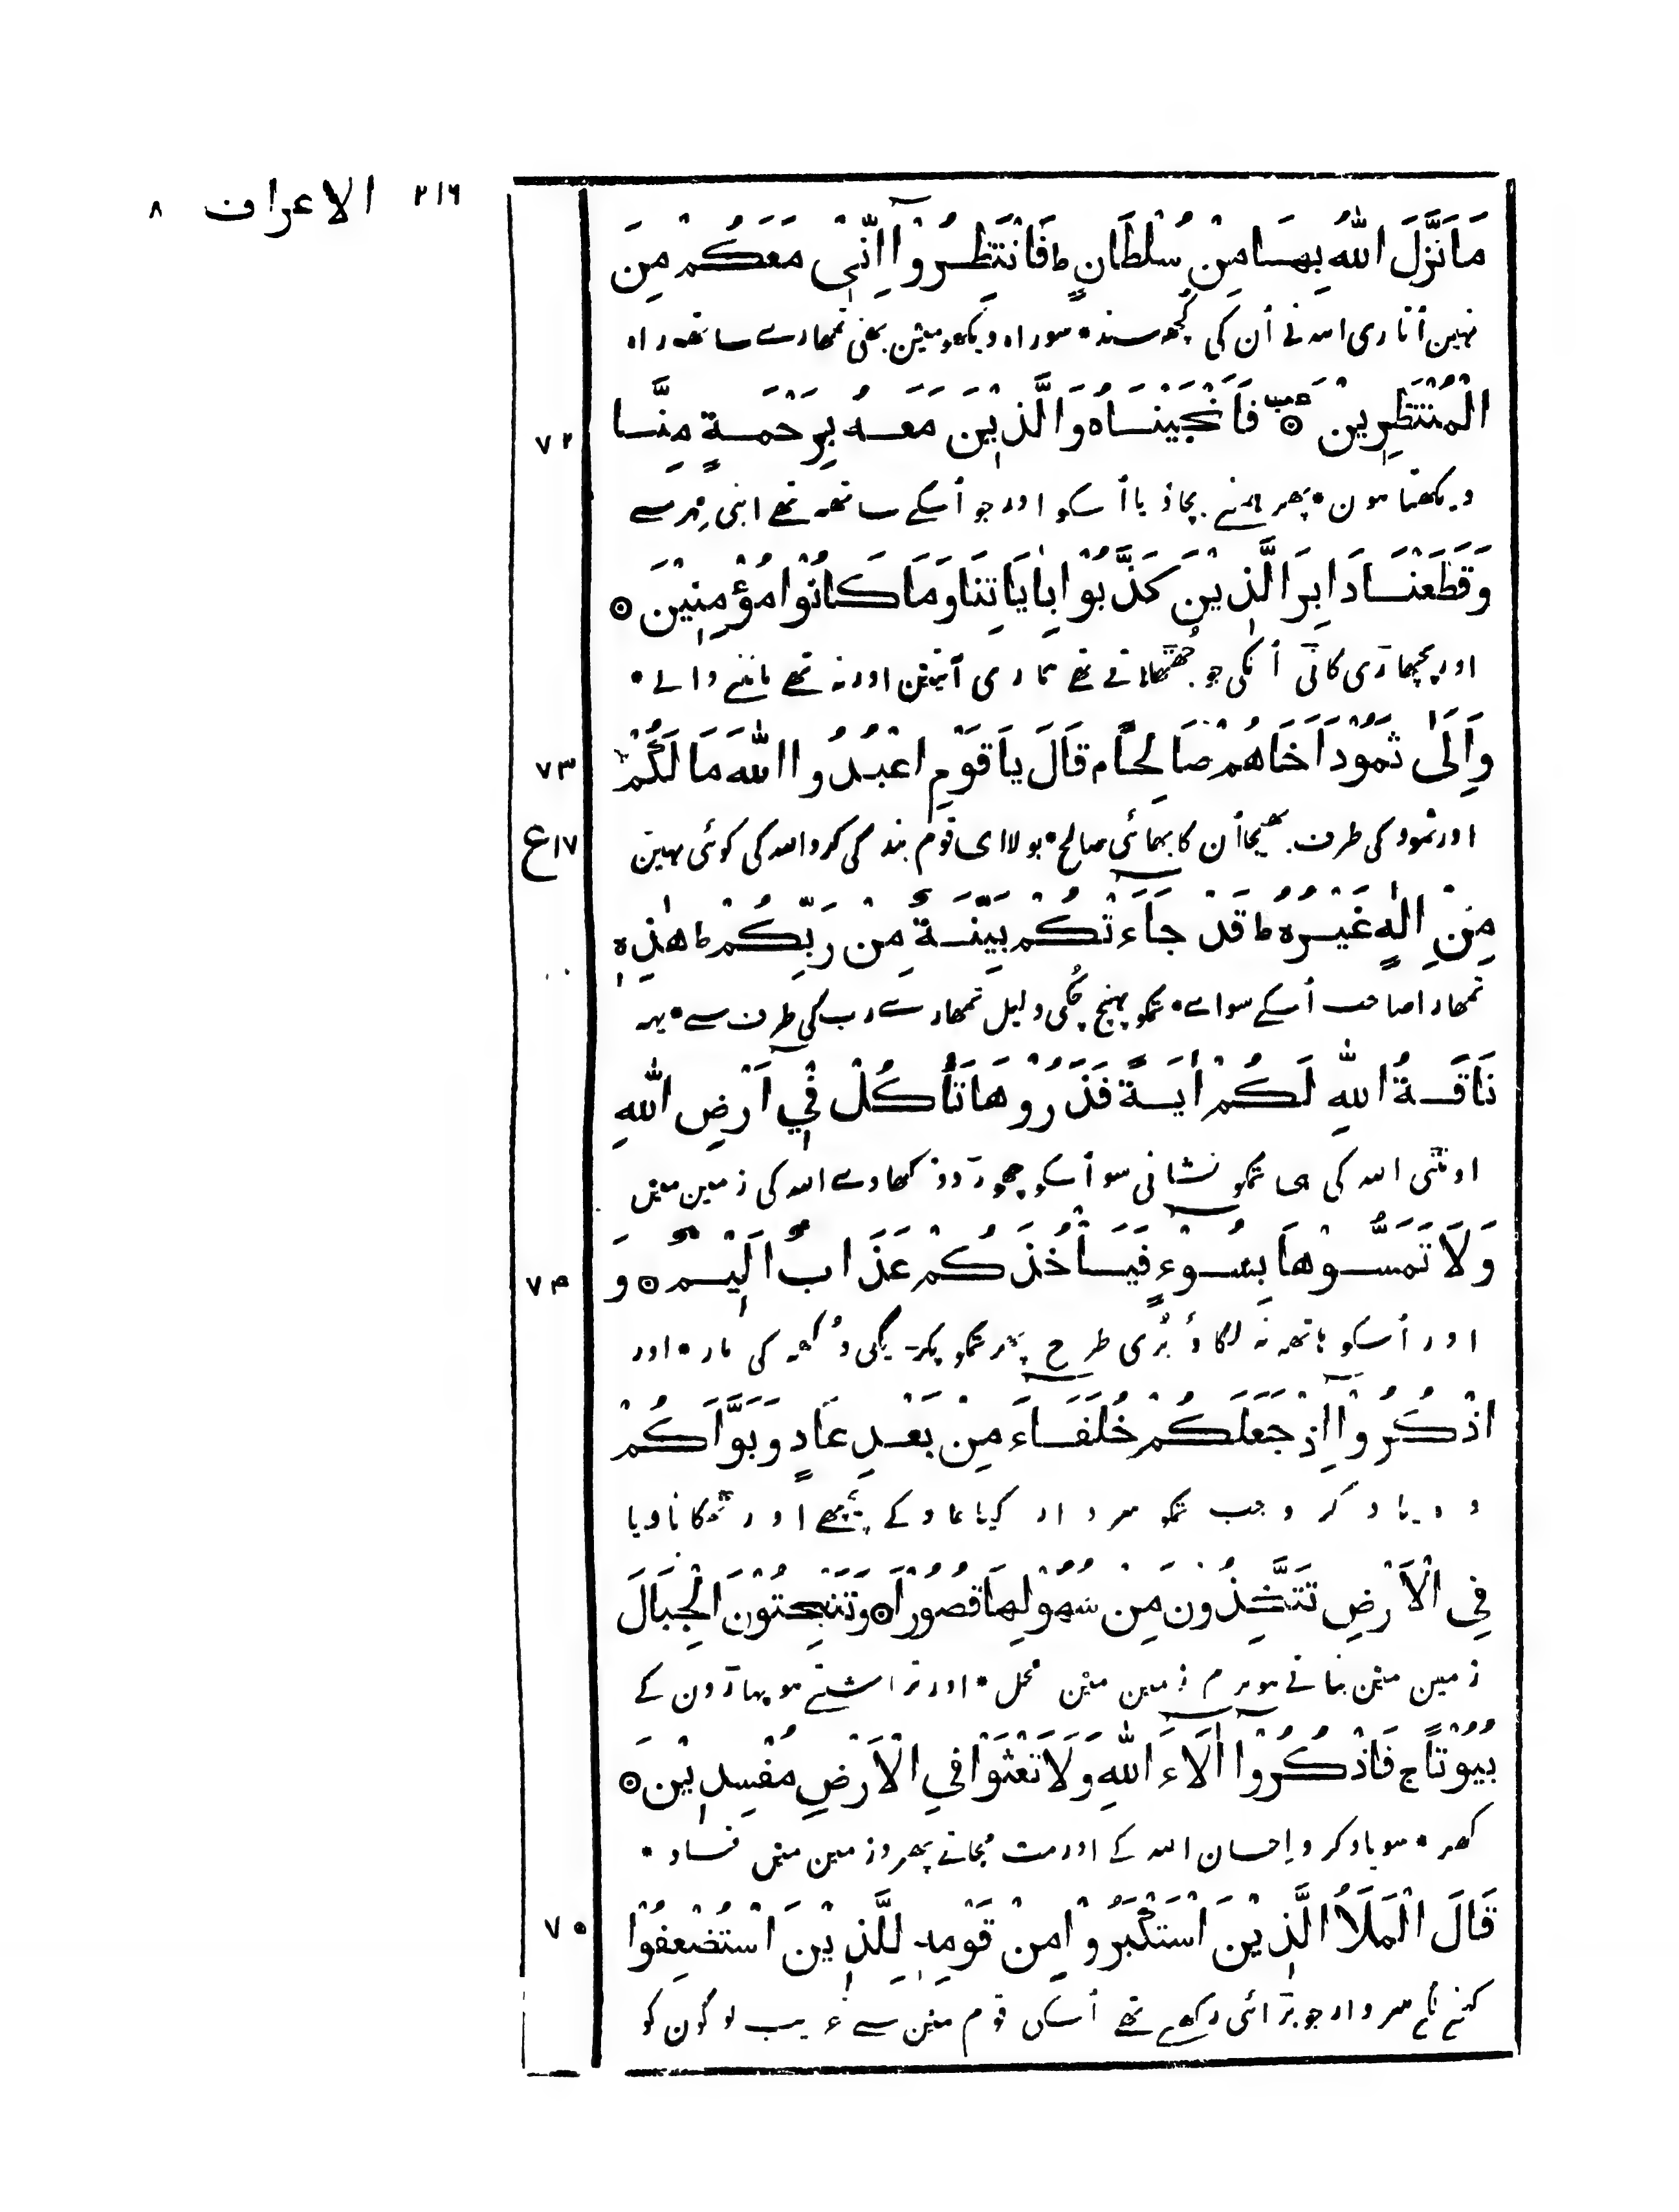 ٢١٦ الاعراف ٨
مَا نَزَّلَ اللّٰهُ بِهَا مِنْ سُلْطَانٍ ط فَانْتَظِرُوْٓا اِنِّیْ مَعَكُمْ مِنَ
نہین اُتاری اللہ نے اُن کی کُچھ سند * سو راہ دیکھو مین بھی تمھارے ساتھ راہ
الْمُنْتَظِرِينَ ۝ فَاَنْجَيْنَاهُ وَالَّذِيْنَ مَعَهُ بِرَحْمَةٍ مِنَّا
٧٢
دیکھتا ہون * پھر ہمنے بچا دیا اُسکو اور جو اُسکے ساتھ تھے اپنی مِہر سے
وَقَطَعْنَا دَابِرَ الَّذِيْنَ كَذَّبُوْا بِاٰيَاتِنَا وَمَا كَانُوْا مُؤْمِنِيْنَ ۝
اور پچھاڑی کاٹی اُنکی جو جُھٹھلاتے تھے ہماری آیتین اور نہ تھے ماننے والے *
وَاِلٰى ثَمُوْدَ اَخَاهُمْ صَالِحًا م قَالَ يَا قَوْمِ اعْبُدُوا اللّٰهَ مَا لَكُمْ
٧٣
اور ثمود کی طرف بھیجا اُن کا بھائی صالح * بولا ای قوم بندگی کرو اللہ کی کوئی نہین
١٧ ع
مِنْ اِلٰهٍ غَيْرُهُ ط قَدْ جَاءَتْكُمْ بَيِّنَةٌ مِنْ رَبِّكُمْ ط هٰذِهٖ
تمھارا صاحب اُسکے سوا * تمکو پہنچ چُکی دلیل تمھارے رب کی طرف سے * یہہ
نَاقَةُ اللّٰهِ لَكُمْ اٰيَةً فَذَرُوْهَا تَأْكُلْ فِيْٓ اَرْضِ اللّٰهِ
اونٹنی اللہ کی ہی تمکو نشانی سو اُسکو چھوڑ دو کھاوے اللہ کی زمین مین
وَلَا تَمَسُّوْهَا بِسُوْءٍ فَيَأْخُذَكُمْ عَذَابٌ اَلِيْمٌ ۝ وَ
٧٤
اور اُسکو ہاتھ نہ لگاؤ بُری طرح پھر تمکو پکڑیگی دُکھ کی مار * اور
اذْكُرُوْٓا اِذْ جَعَلَكُمْ خُلَفَاءَ مِنْ بَعْدِ عَادٍ وَبَوَّاَكُمْ
وہ یاد کرو جب تمکو سردار کیا عاد کے پیچھے اور ٹھکانا دیا
فِى الْاَرْضِ تَتَّخِذُونَ مِنْ سُهُوْلِهَا قُصُوْرًا ۝ وَتَنْحِتُوْنَ الْجِبَالَ
زمین مین بناتے ہو نرم زمین مین محل * اور تراشتے ہو پہاڑون کے
بُيُوْتًا ج فَاذْكُرُوْٓا اٰلَاءَ اللّٰهِ وَلَا تَعْثَوْا فِي الْاَرْضِ مُفْسِدِيْنَ ۝
گھر * سو یاد کرو اِحسان اللہ کے اور مت مچاتے پھرو زمین مین فساد *
قَالَ الْمَلَاُ الَّذِيْنَ اسْتَكْبَرُوْا مِنْ قَوْمِهٖ لِلَّذِيْنَ اسْتُضْعِفُوْا
٧٥
کہنے لگے سردار جو بڑائی رکھتے تھے اُسکی قوم مین سے غریب لوگون کو